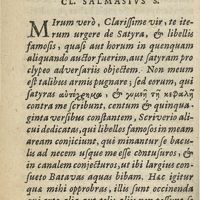 CL. SALMASIVS S.
MIrum verò, Clarissime vir, te ite-
rum urgere de Satyra, & libellis
famosis, quasi aut horum in quenquam
aliquando auctor fuerim, aut satyram pro
clypeo adversariis objectem. Non meum
est talibus armis pugnare; sed erunt, qui
satyras & κεφαλῇ
contra me scribunt, centum & quinqua-
ginta versibus constantem, Scriverio ali-
cui dedicatas, qui libellos famosos in meam
ædem conjiciunt, qui minantur se bacu-
lis ad necem usque me esse contusuros, &
in canalem conjecturos, ut ibi largius con-
sueto Batavas aquas bibam. Hac igitur
qua mihi opprobras, illis sunt occinenda